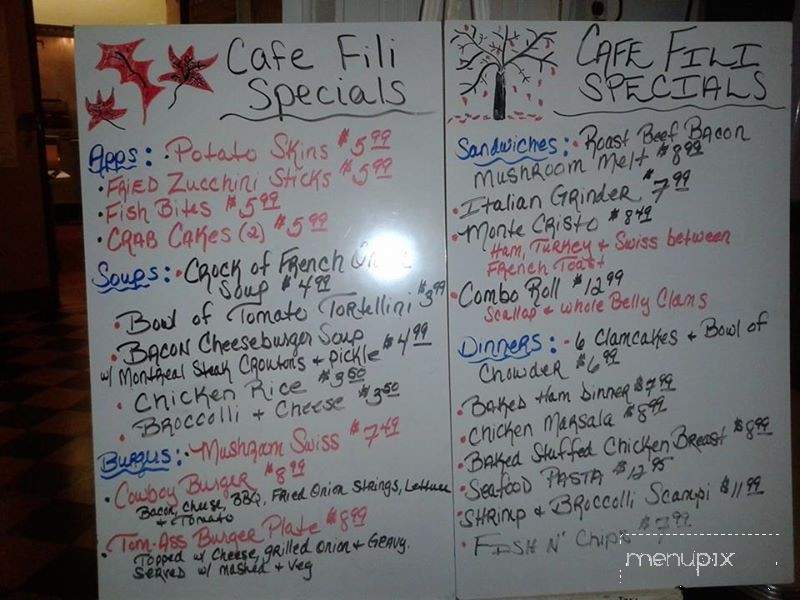 Cafe Fili
Specials
Apps: · Potato Skins $5.99
· Fried Zucchini Sticks $5.99
· Fish Bites $5.99
· Crab Cakes (2) $5.99
Soups: · Crock of French
Soup $4.99
· Bowl of Tomato Tortellini $3.99
· Bacon Cheeseburger Soup
w/ Montreal Steak Croutons + Pickle $4.99
· Chicken Rice $3.50
· Broccolli + Cheese $3.50
Burgers: · Mushroom Swiss $7.49
· Cowboy Burger $8.99
Bacon, cheese, BBQ, Fried Onion Strings, Lettuce
& Tomato
· Tom-Ass Burger Plate $8.99
Topped w/ Cheese, Grilled Onion + Gravy.
Served w/ mashed + veg
CAFE FILI
SPECIALS
Sandwiches: · Roast Beef Bacon
Mushroom Melt $8.99
· Italian Grinder $7.99
· Monte Cristo $8.49
Ham, Turkey + Swiss between
French Toast
· Combo Roll $12.99
Scallop & whole Belly Clams
Dinners: · 6 Clamcakes + Bowl of
Chowder $6.99
· Baked Ham Dinner $7.99
· Chicken Marsala $8.99
· Baked Stuffed Chicken Breast $8.99
· Seafood Pasta $12.95
· Shrimp & Broccolli Scampi $11.99
· Fish N' Chips
menupix